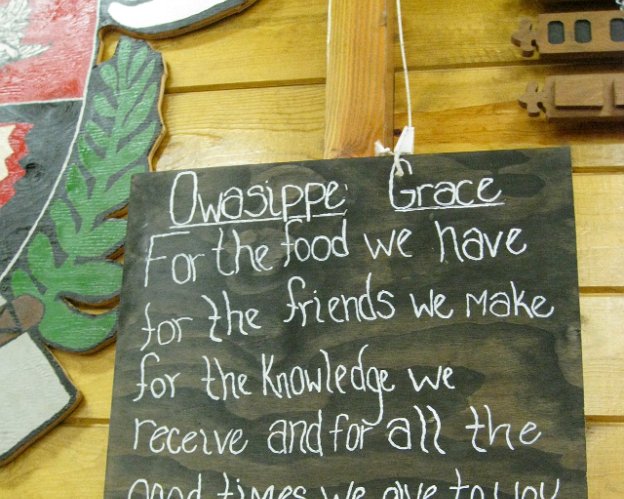 Owasippe Grace
For the food we have
for the friends we make
for the knowledge we
receive and for all the
good times we give to you